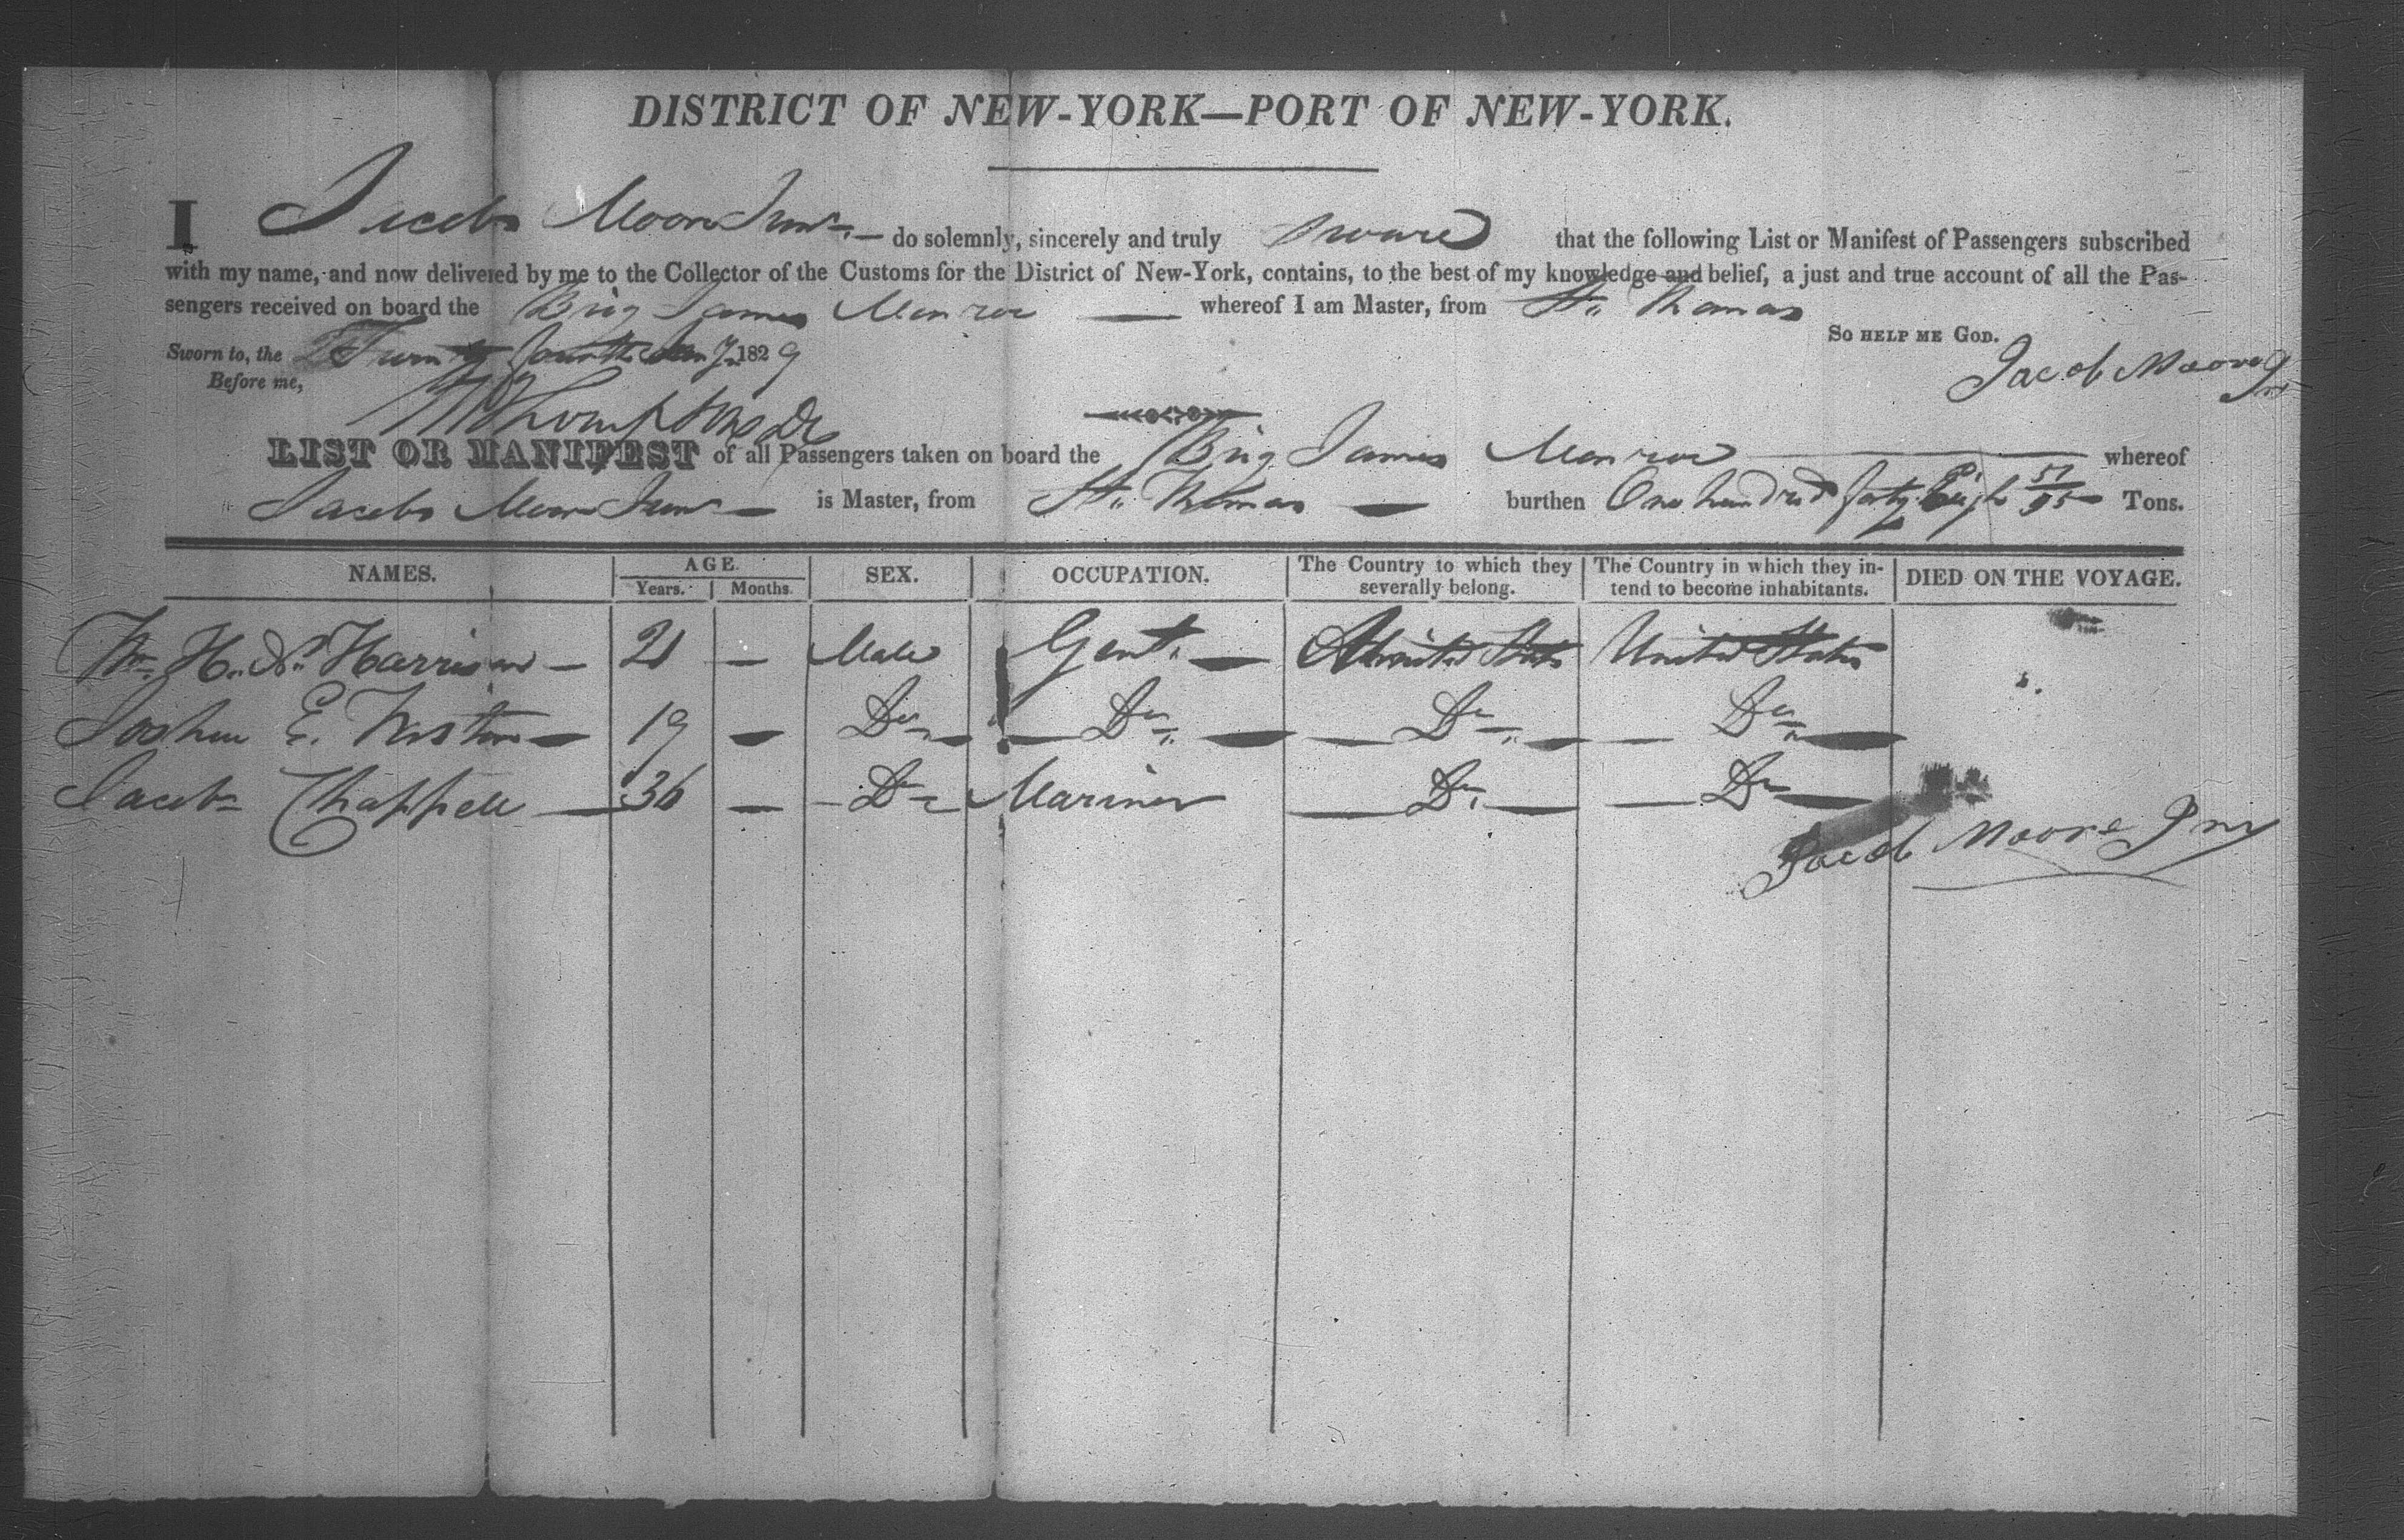 DISTRICT OF NEW-YORK—PORT OF NEW-YORK.
I Jacob Moore Junr. — do solemnly, sincerely and truly swear that the following List or Manifest of Passengers subscribed
with my name, and now delivered by me to the Collector of the Customs for the District of New-York, contains, to the best of my knowledge and belief, a just and true account of all the Pas-
sengers received on board the Brig James Monroe — whereof I am Master, from St. Thomas
So HELP ME GOD.
Sworn to, the Twenty fourth Jany. 1829
Jacob Moore Jr
Before me,
Thompson
LIST OR MANIFEST of all Passengers taken on board the Brig James Monroe — whereof
Jacob Moore Junr — is Master, from St. Thomas — burthen One hundred forty Eight 51/95 Tons.
NAMES. AGE. Years. Months. SEX. OCCUPATION. The Country to which they severally belong. The Country in which they in-tend to become inhabitants. DIED ON THE VOYAGE.
Wm. H. Harrison — 21 — Male Gent. — United States United States
E. — 19 — Do. — Do. — Do. — Do. —
Jacob Chappell — 36 — Do. Mariner — Do. — Do. —
Jacob Moore Jnr